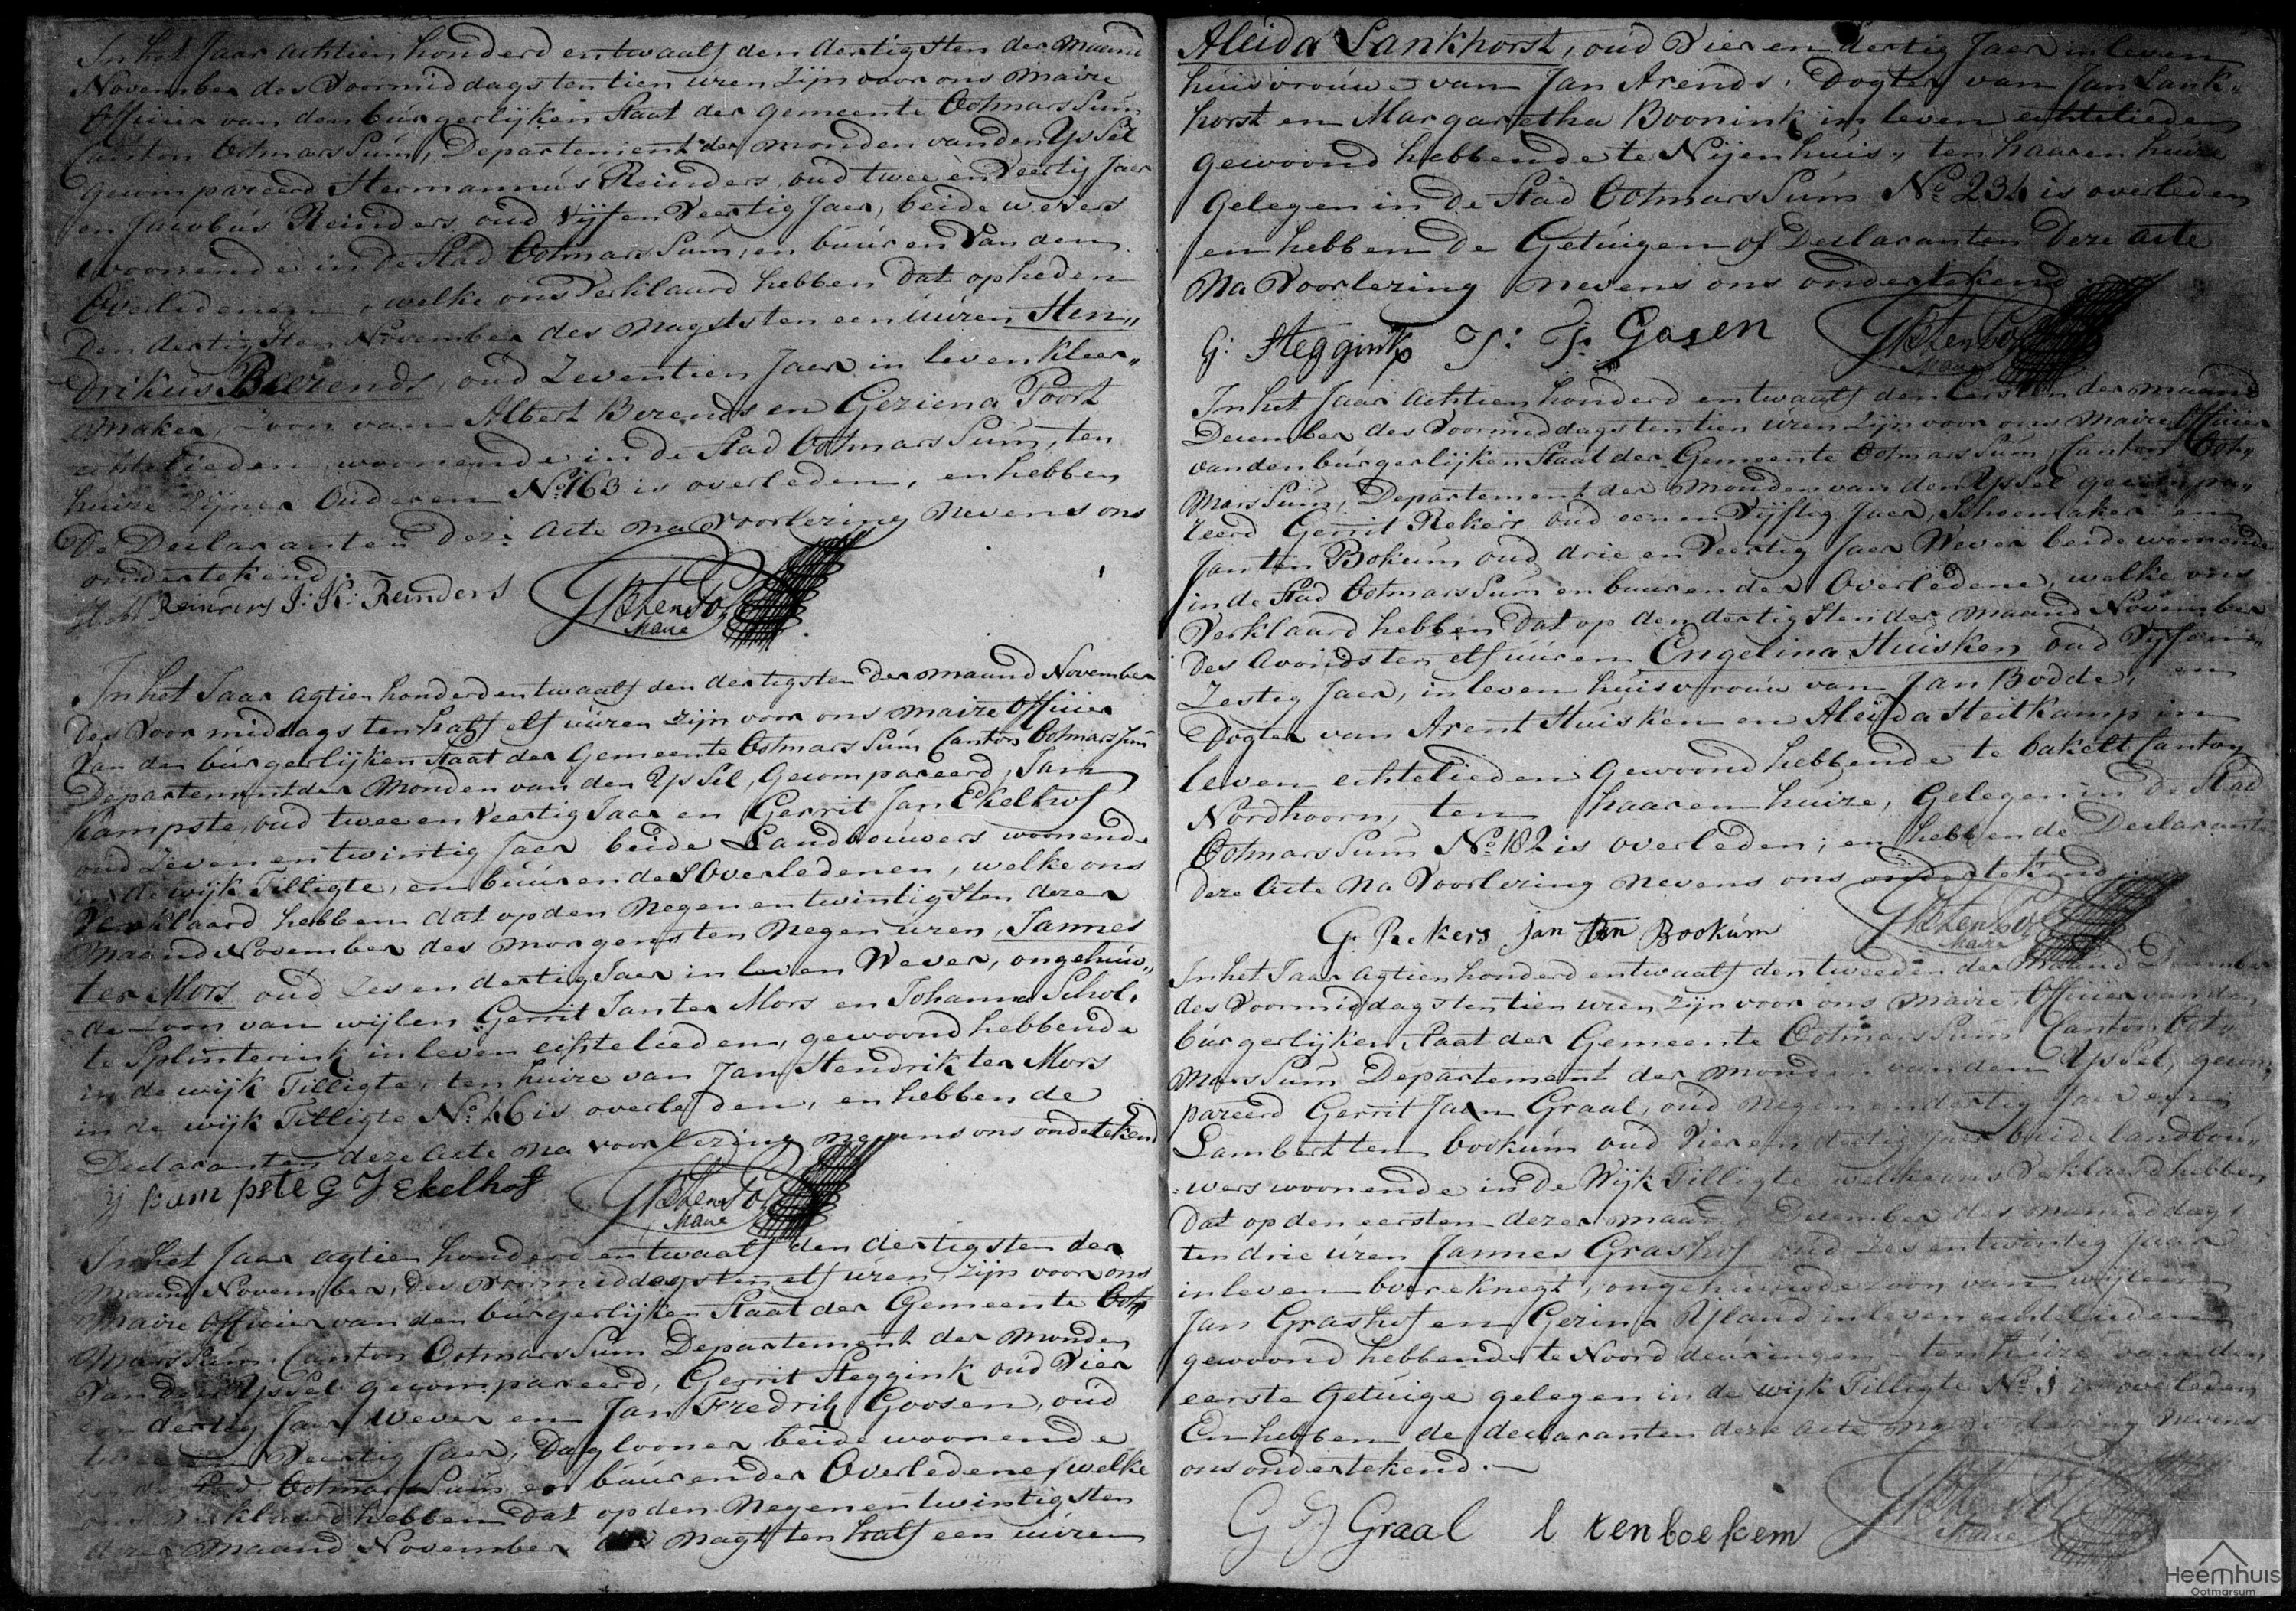 In het Jaar achtien honderd en twaalf den dertigsten der maand
November des Voormiddags ten tien uren zijn voor ons maire
Officier van den burgerlijken Staat der gemeente Ootmarssum
Canton Ootmarssum, Departement der monden van den Yssel
gecompareerd Hermannus Reinders, oud twee en Veertig Jaer
en Jacobus Reinders oud Vijf en Veertig Jaer, beide wevers
woonende in de Stad Ootmarssum, en buuren van den
Overledenen, welke ons Verklaard hebben dat op heden
den dertigsten November des nagts ten een uuren Hen„
drikus Beerends, oud Zeventien Jaer in leven kleer„
maker, Zoon van Albert Berends en Geziena Poort
echtelieden woonende in de Stad Ootmarssum, ten
huize zijner Ouderen No 163 is overleden, en hebben
de Declaranten deze Acte na Voorlezing nevens ons
ondertekend.
H: Reinders J: K: Reinders GB ten Pol
Maire
In het Jaar agtien honderd en twaalf den dertigsten der maand November
des Voor middags ten half elf uuren zijn voor ons maire Officier
Van den burgerlijken Staat der Gemeente Ootmarssum Canton Ootmarssum
Departement der Monden van den Yssel, Gecompareerd, Jan
Kampste, oud twee en Veertig Jaar en Gerrit Jan Ekelhof
oud Zeven en twintig Jaer beide Landbouwers woonende
in de wijk Tilligte, en buuren des Overledenen, welke ons
Verklaard hebben dat op den Negen en twintigsten dezer
maand November des morgens ten Negen uren, Jannes
ter Mors oud Zes en dertig Jaer in leven Wever, ongehuw„
de Zoon van wijlen Gerrit Jan ter Mors en Johanna Schol„
te Splinterink in leven echtelieden, gewoond hebbende
in de wijk Tilligte, ten huize van Jan Hendrik ter Mors
in de wijk Tilligte No 46 is overleden, en hebben de
Declaranten deze Acte na voorlezing nevens ons ondertekend
J kampste G J Ekelhof GB ten Pol
Maire
In het Jaar agtien honderd en twaalf den dertigsten der
Maand November, des Voormiddags ten elf uren, zijn voor ons
Maire Officier van den burgerlijken Staat der Gemeente Oot„
marssum, Canton Ootmarssum Departement der Monden
Van den Yssel gecompareerd, Gerrit Steggink oud Vier
en dertig Jaer Wever en Jan Fredrik Goosen, oud
twee en Veertig Jaer, Daglooner beide woonende
in de Stad Ootmarssum en buuren der Overledene, welke
ons Verklaard hebben dat op den Negen en twintigsten
dezer maand November des Nagt ten half een uuren
Aleida Lankhorst, oud Vier en dertig Jaer in leven
huisvrouwe van Jan Arends, Dogter van Jan Lank„
horst en Margaretha Boonink in leven echtelieden
gewoond hebbende te Nijenhuis, ten haaren huize
Gelegen in de Stad Ootmarssum No 234 is overleden
en hebben de Getuigen of Declaranten Deze Acte
Na Voorlezing nevens ons ondertekend
G: Steggink J: F: Gosen GB ten Pol
Maire
In het Jaar Achtien honderd en twaalf den Eersten der maand
December des Voormiddags ten tien uren zijn voor ons Maire Officier
van den burgerlijken Staat der Gemeente Ootmarssum, Canton Oot„
marssum, Departement der Monden van den Yssel gecompa„
reerd Gerrit Rekers oud een en Vijftig Jaer, Schoemaker en
Jan ten Bokum oud drie en Veertig Jaer Wever beide woonende
in de Stad Ootmarssum en buuren der Overledene, welke ons
Verklaard hebben dat op den dertigsten der maand November
des Avonds ten elf uuren Engelina Huisken oud Vijf en
Zestig Jaer, in leven huisvrouw van Jan Bodde, en
Dogter van Arent Huisken en Aleida Heitkamp in
leven echtelieden Gewoond hebbende te bakelt Canton
Nordhoorn, ten haaren huize, Gelegen in de Stad
Ootmarssum No 182 is overleden; en hebben de Declarante
deze Acte Na Voorlezing Nevens ons ondertekend
G. Rekers Jan ten Bookum GB ten Pol
Maire
In het Jaar Agtien honderd en twaalf den tweeden der Maand December
des Voormiddags ten tien uren zijn voor ons maire, Officier van den
burgerlijken Staat der Gemeente Ootmarssum Canton Oot„
marssum Departement der monden van den Yssel, gecom„
pareerd Gerrit Jan Graal, oud negen en dertig Jaer en
Lambert ten bookum oud Vier en dertig Jaer beide landbou„
wers woonende in de Wijk Tilligte welke ons Verklaard hebben
Dat op den eersten dezer maand December des namiddags
ten drie uren Jannes Grashof oud Zes en twintig Jaar
in leven boereknegt, ongehuwde zoon van wijlen
Jan Grashof en Gezina Yland in leven echtelieden
gewoond hebbende te Noord deuringen, ten huize van den
eerste Getuige gelegen in de wijk Tilligte No is overleden
En hebben de declaranten deze Acte na voorlezing nevens
ons ondertekend.
G J Graal l ten boekem GB ten Pol
Maire
Heemhuis
Ootmarsum